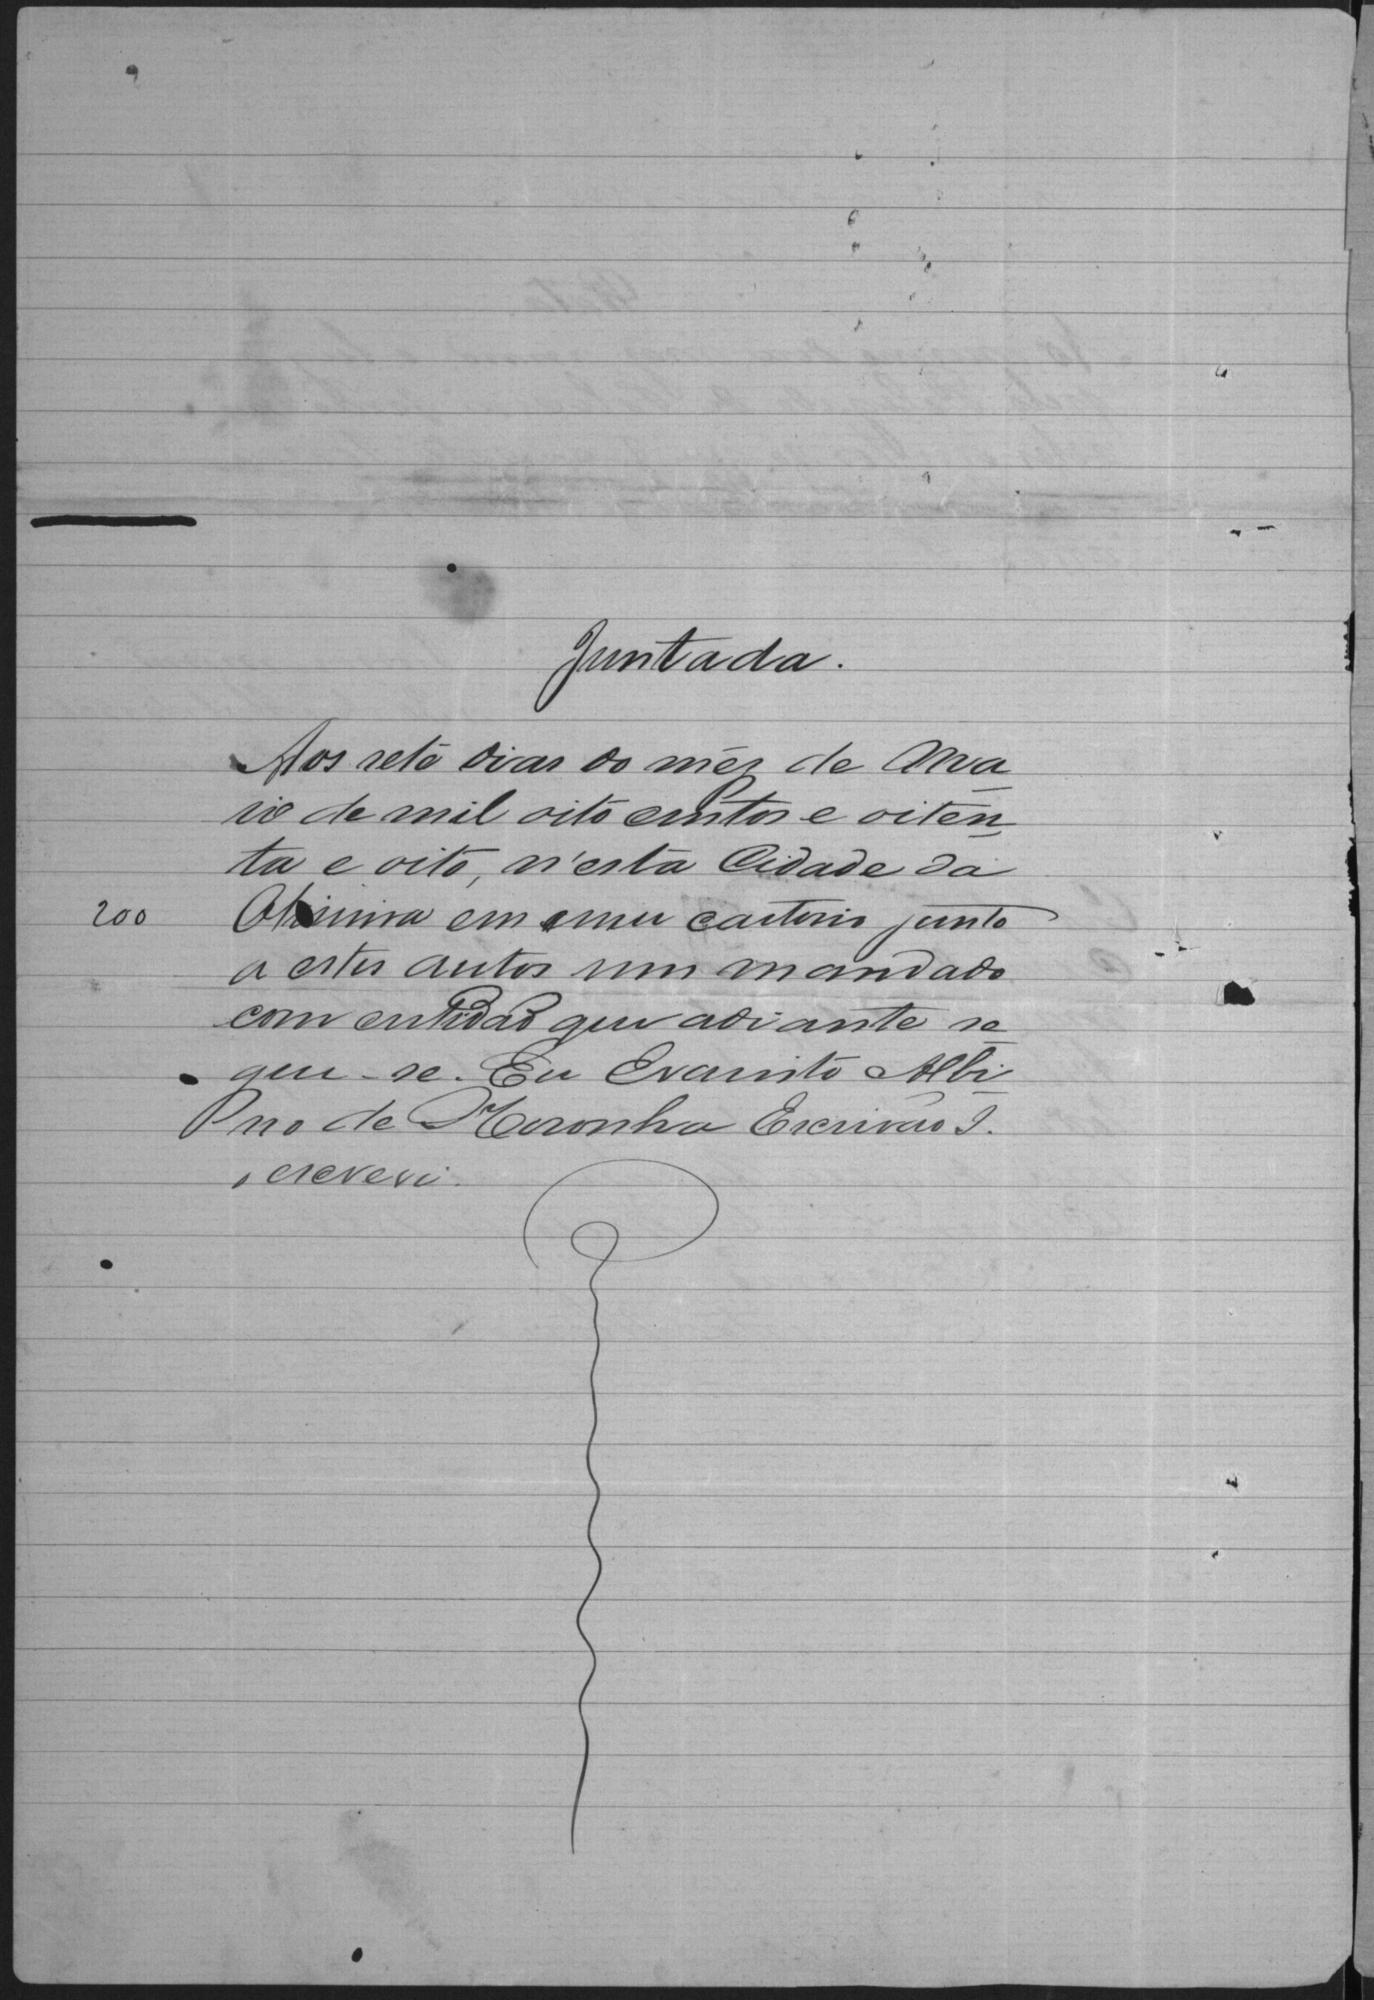 Juntada.
Aos sete dias do mês de Ma
io de mil oito centos e oiten
ta e oito, n'esta Cidade da
200 em meu cartorio junto
a estes autos um mandado
com certidão que adiante se
gue-se. Eu Evaristo Albi
no de Noronha Escrivão I.
escrevi.